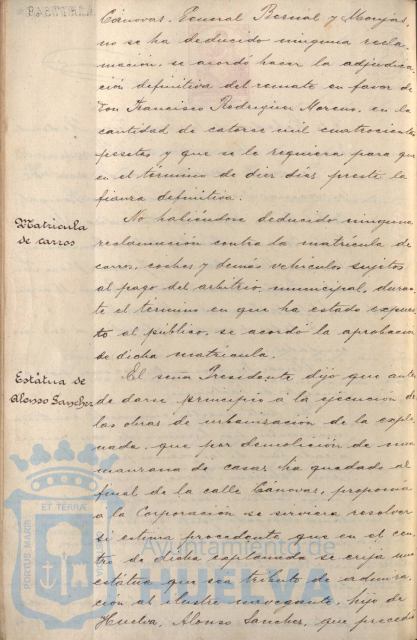 Cánovas, General Bernal y Monjas,
no se ha deducido ninguna recla-
mación, se acordó hacer la adjudica-
ción definitiva del remate en favor de
Don Francisco Rodríguez Moreno, en la
cantidad de catorse mil cuatrocientas
pesetas y que se le requiera para que
en el término de diez dias preste la
fianza definitiva.
Matrícula
de carros
No habiéndose deducido ninguna
reclamación contra la matrícula de
carros, coches y demás vehículos sujetos
al pago del arbitrio municipal, duran-
te el término en que ha estado expues-
to al público, se acordó la aprobación
de dicha matrícula.
Estátua de
Alonso Sanchez
El señor Presidente dijo que antes
de darse principio á la ejecución de
las obras de urbanización de la expla-
nada, que por demolición de una
manzana de casas ha quedado al
final de la calle Cánovas, proponía
á la Corporación se sirviera resolver
si estima procedente que en el cen-
tro de dicha explanada se erija una
estátua que sea tributo de admira-
ción al ilustre navegante, hijo de
Huelva, Alonso Sanchez, que precedió
PORTUS MARIS ET TERRÆ
Ayuntamiento de
HUELVA